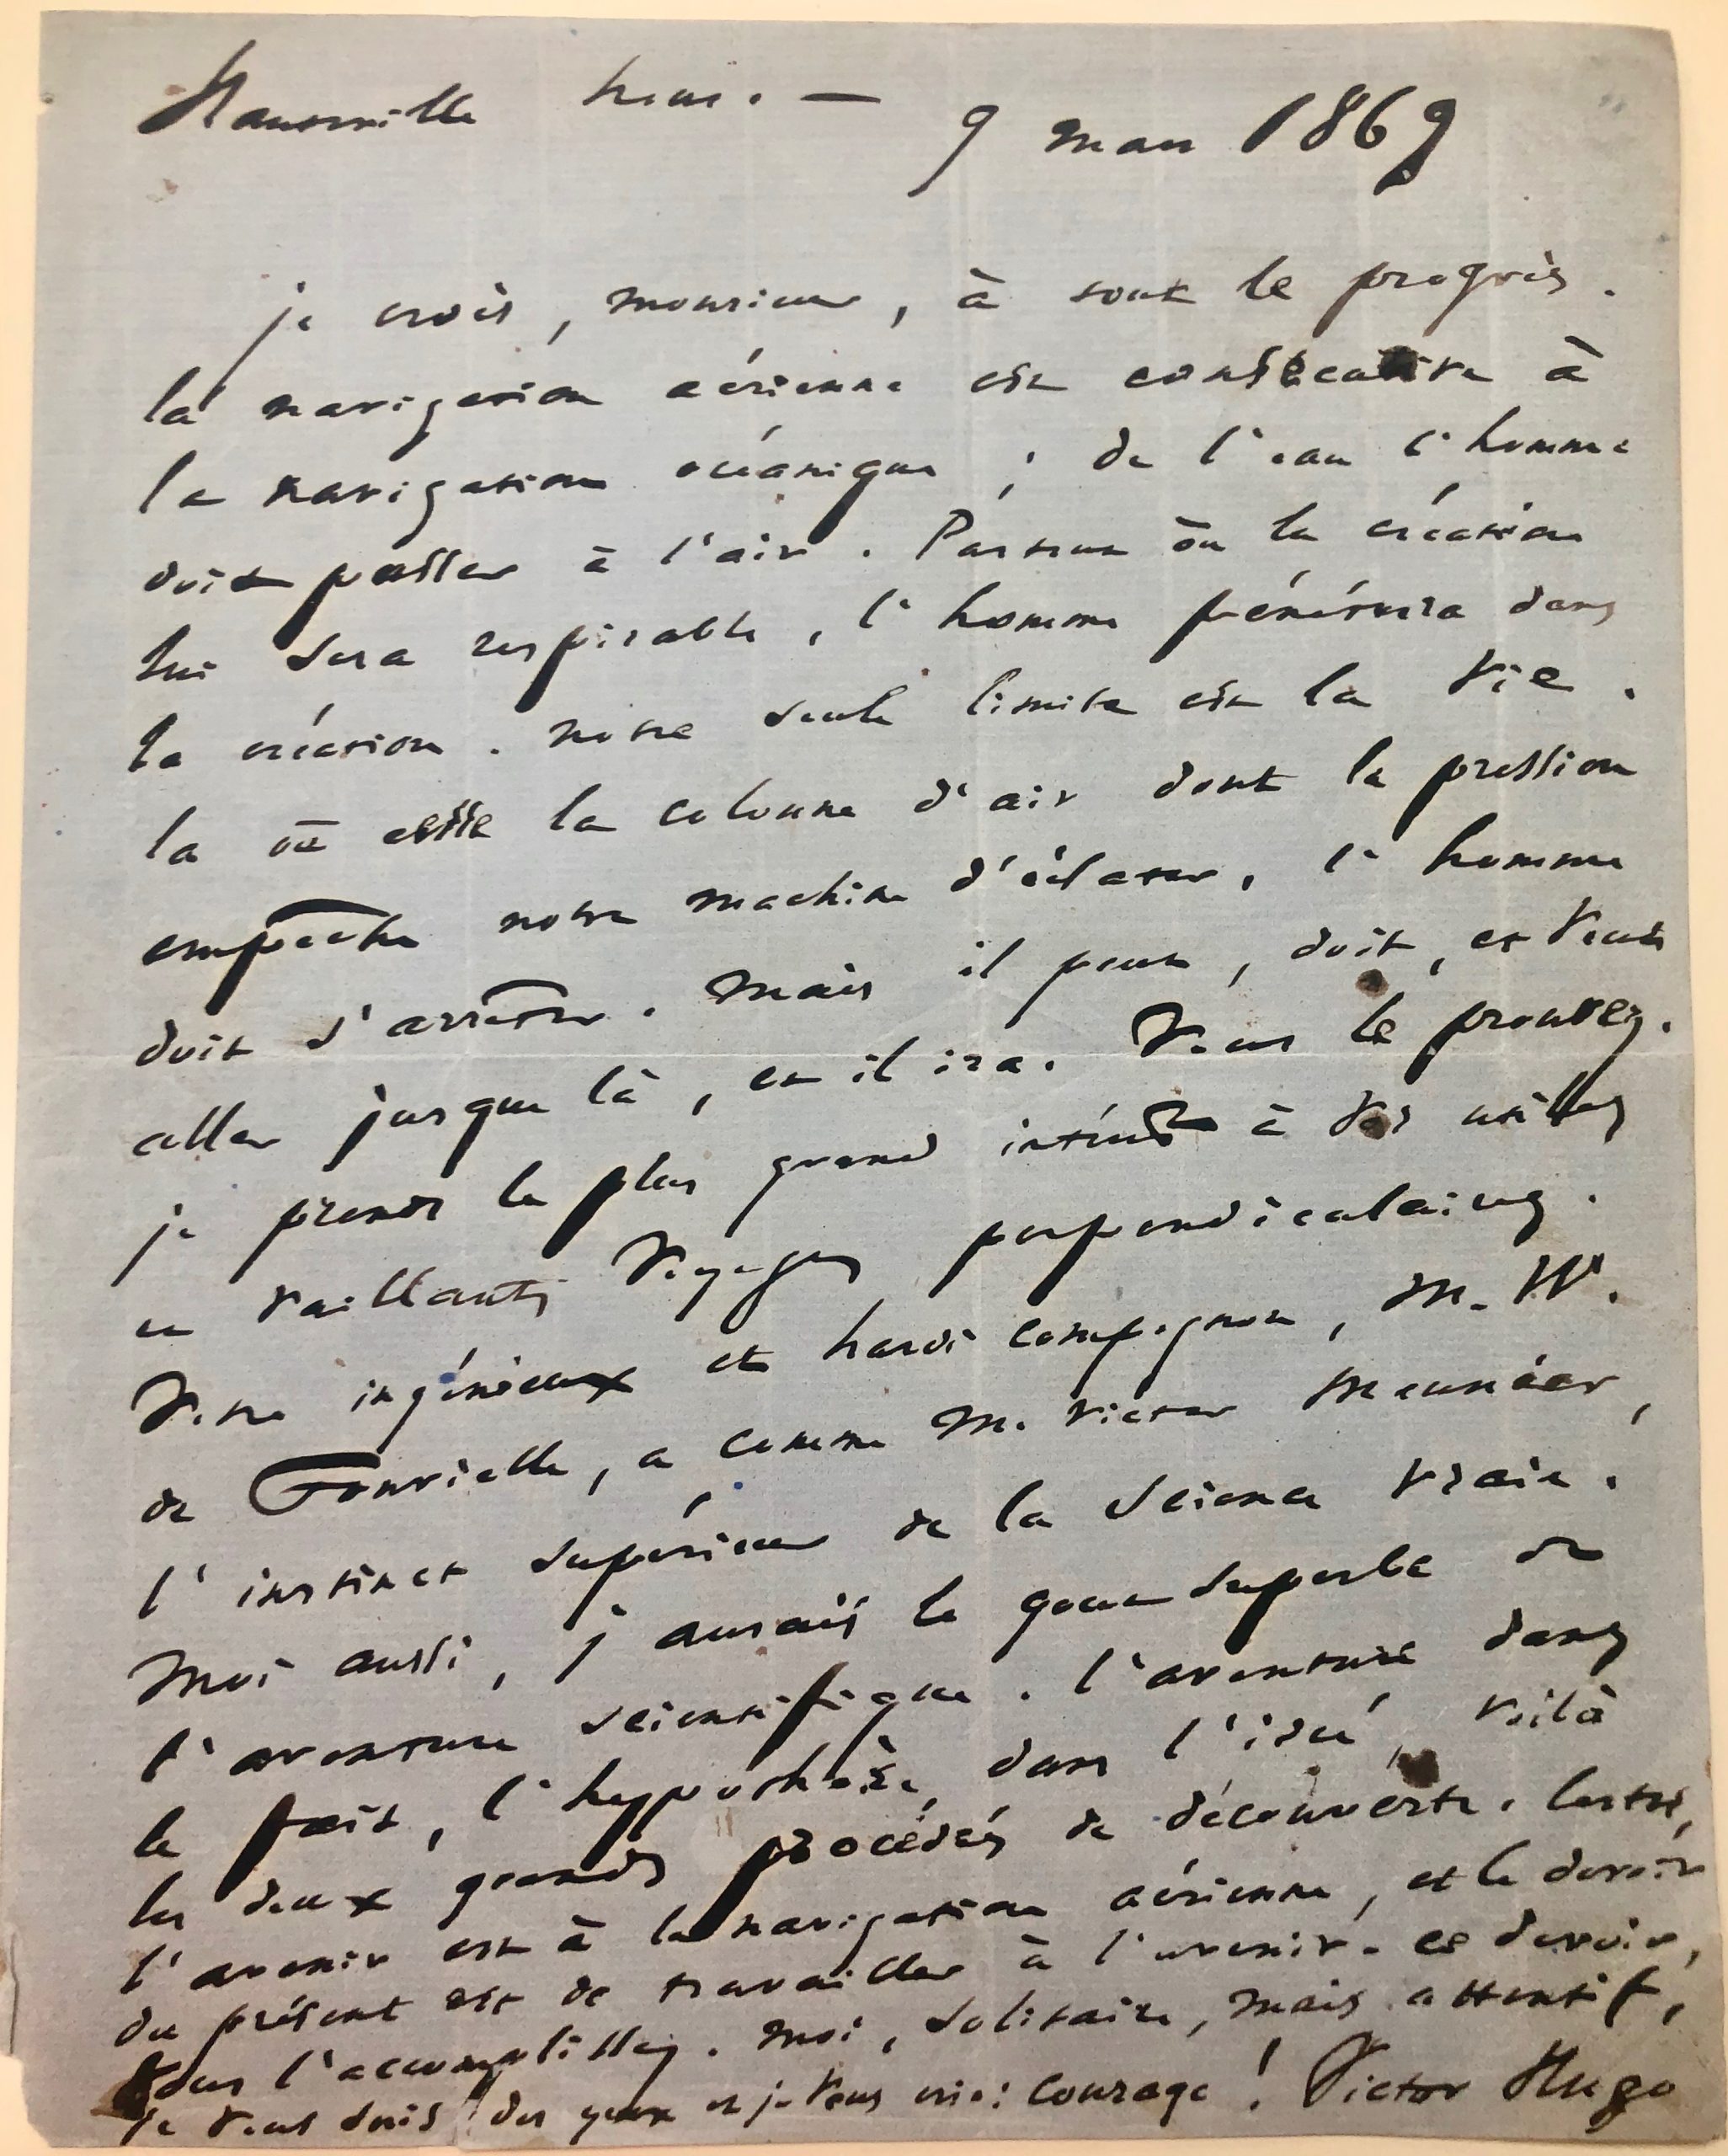 Hauteville house. — 9 mars 1869
je crois, monsieur, à tout le progrès.
la navigation aérienne est consécutive à
la navigation océanique ; de l'eau l'homme
doit passer à l'air. Partout où la création
lui sera respirable, l'homme pénétrera dans
la création. notre seule limite est la vie.
la où cesse la colonne d'air dont la pression
empêche notre machine d'éclater, l'homme
doit s'arrêter. Mais il peut, doit, et veut
aller jusque là, et il ira. Vous le prouvez.
je prends le plus grand intérêt à vos utiles
et vaillants voyages perpendiculaires.
Votre ingénieux et hardi compagnon, M. W.
de Fonvielle, a comme M. Victor Meunier,
l'instinct supérieur de la science vraie.
Moi aussi, j'aurais le goût superbe de
l'aventure scientifique. l'aventure dans
le fait, l'hypothèse dans l'idée, voilà
les deux grands procédés de découverte. Certes,
l'avenir est à la navigation aérienne, et le devoir
du présent est de travailler à l'avenir. ce devoir,
vous l'accomplissez. Moi, solitaire, mais attentif,
je vous suis des yeux et je vous crie : courage ! Victor Hugo